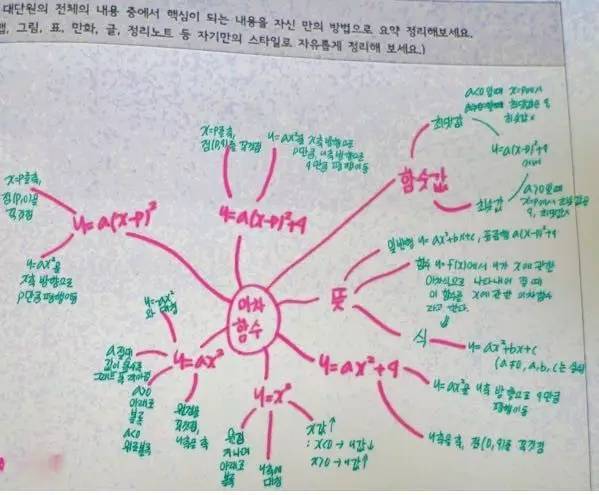 대단원의 전체의 내용 중에서 핵심이 되는 내용을 자신 만의 방법으로 요약 정리해보세요.
맵, 그림, 표, 만화, 글, 정리노트 등 자기만의 스타일로 자유롭게 정리해 보세요.)
이차
함수
y=a(x-p)²
x=p를 축,
점(p,0)을
꼭짓점
y=ax²을
x축 방향으로
p만큼 평행이동
y=a(x-p)²+q
x=p를 축,
점(p,q)을 꼭짓점
y=ax²을 x축 방향으로
p만큼, y축 방향으로
q만큼 평행이동
함숫값
최댓값
a<0일 때 x=p에서
최댓값은 q,
최솟값 x
y=a(x-p)²+q
에서
최솟값
a>0일 때
x=p에서 최솟값은
q, 최댓값 x
뜻
일반형 y=ax²+bx+c, 표준형 a(x-p)²+q
함수 y=f(x)에서 y가 x에 관한
이차식으로 나타내어 질 때
이 함수를 x에 관한 이차함수
라고 한다.
식
y=ax²+bx+c
(a≠0, a,b,c는 상수
y=ax²+q
y=ax²을 y축 방향으로 q만큼
평행이동
y축을 축, 점(0,q)를 꼭짓점
y=x²
원점
지나며
아래로
볼록
y축에
대칭
x값↑
: x<0→y값↓
x>0→y값↑
y=ax²
y=-ax²
와 대칭
a절대
값이 클수록
그래프 폭 좁아짐
a>0
아래로
볼록
a<0
위로볼록
원점을
꼭짓점,
y축을 축